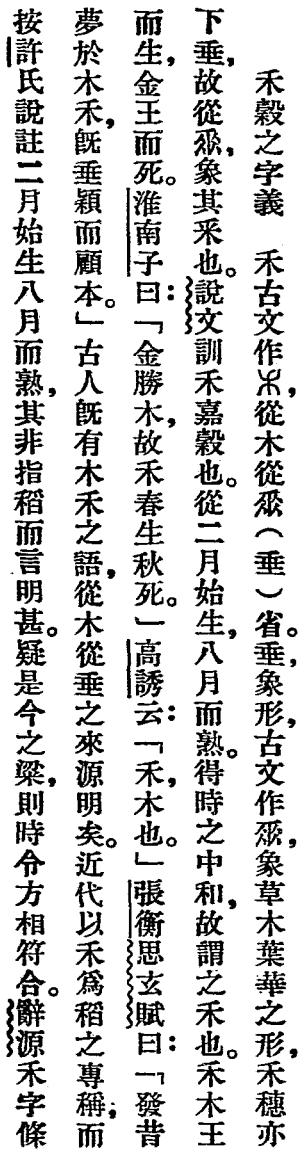 禾穀之字義　禾古文作𥝌，從木從𠂹（垂）省。垂，象形，古文作𠂹，象草木葉華之形，禾穗亦
下垂，故從𠂹，象其釆也。說文訓禾嘉穀也。從二月始生，八月而熟。得時之中和，故謂之禾也。禾木王
而生，金王而死。淮南子曰：「金勝木，故禾春生秋死。」高誘云：「禾，木也。」張衡思玄賦曰：「發昔
夢於木禾，旣垂穎而顧本。」古人旣有木禾之語，從木從垂之來源明矣。近代以禾爲稻之專稱；而
按許氏說註二月始生八月而熟，其非指稻而言明甚。疑是今之粱，則時令方相符合。辭源禾字條